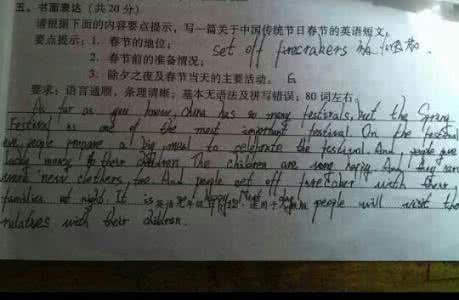 五、书面表达（共20分）
请根据下面的内容要点提示，写一篇关于中国传统节日春节的英语短文。
要点提示：1. 春节的地位；
set off firecrakers
2. 春节前的准备情况；
3. 除夕之夜及春节当天的主要活动。
要求：语言通顺，条理清晰；基本无语法及拼写错误；80词左右。
As far as you know, china has so many festivals, but the Spring
Festival is one of the most important festival. On the festival
eve, people prepare a big meal to celebrate the festival And people give
lucky money to their children. The children are very happy. And they
want new clothers, too. And people set off firecraker with their
families at night. It is Next day people will visit the
relatives with their children.